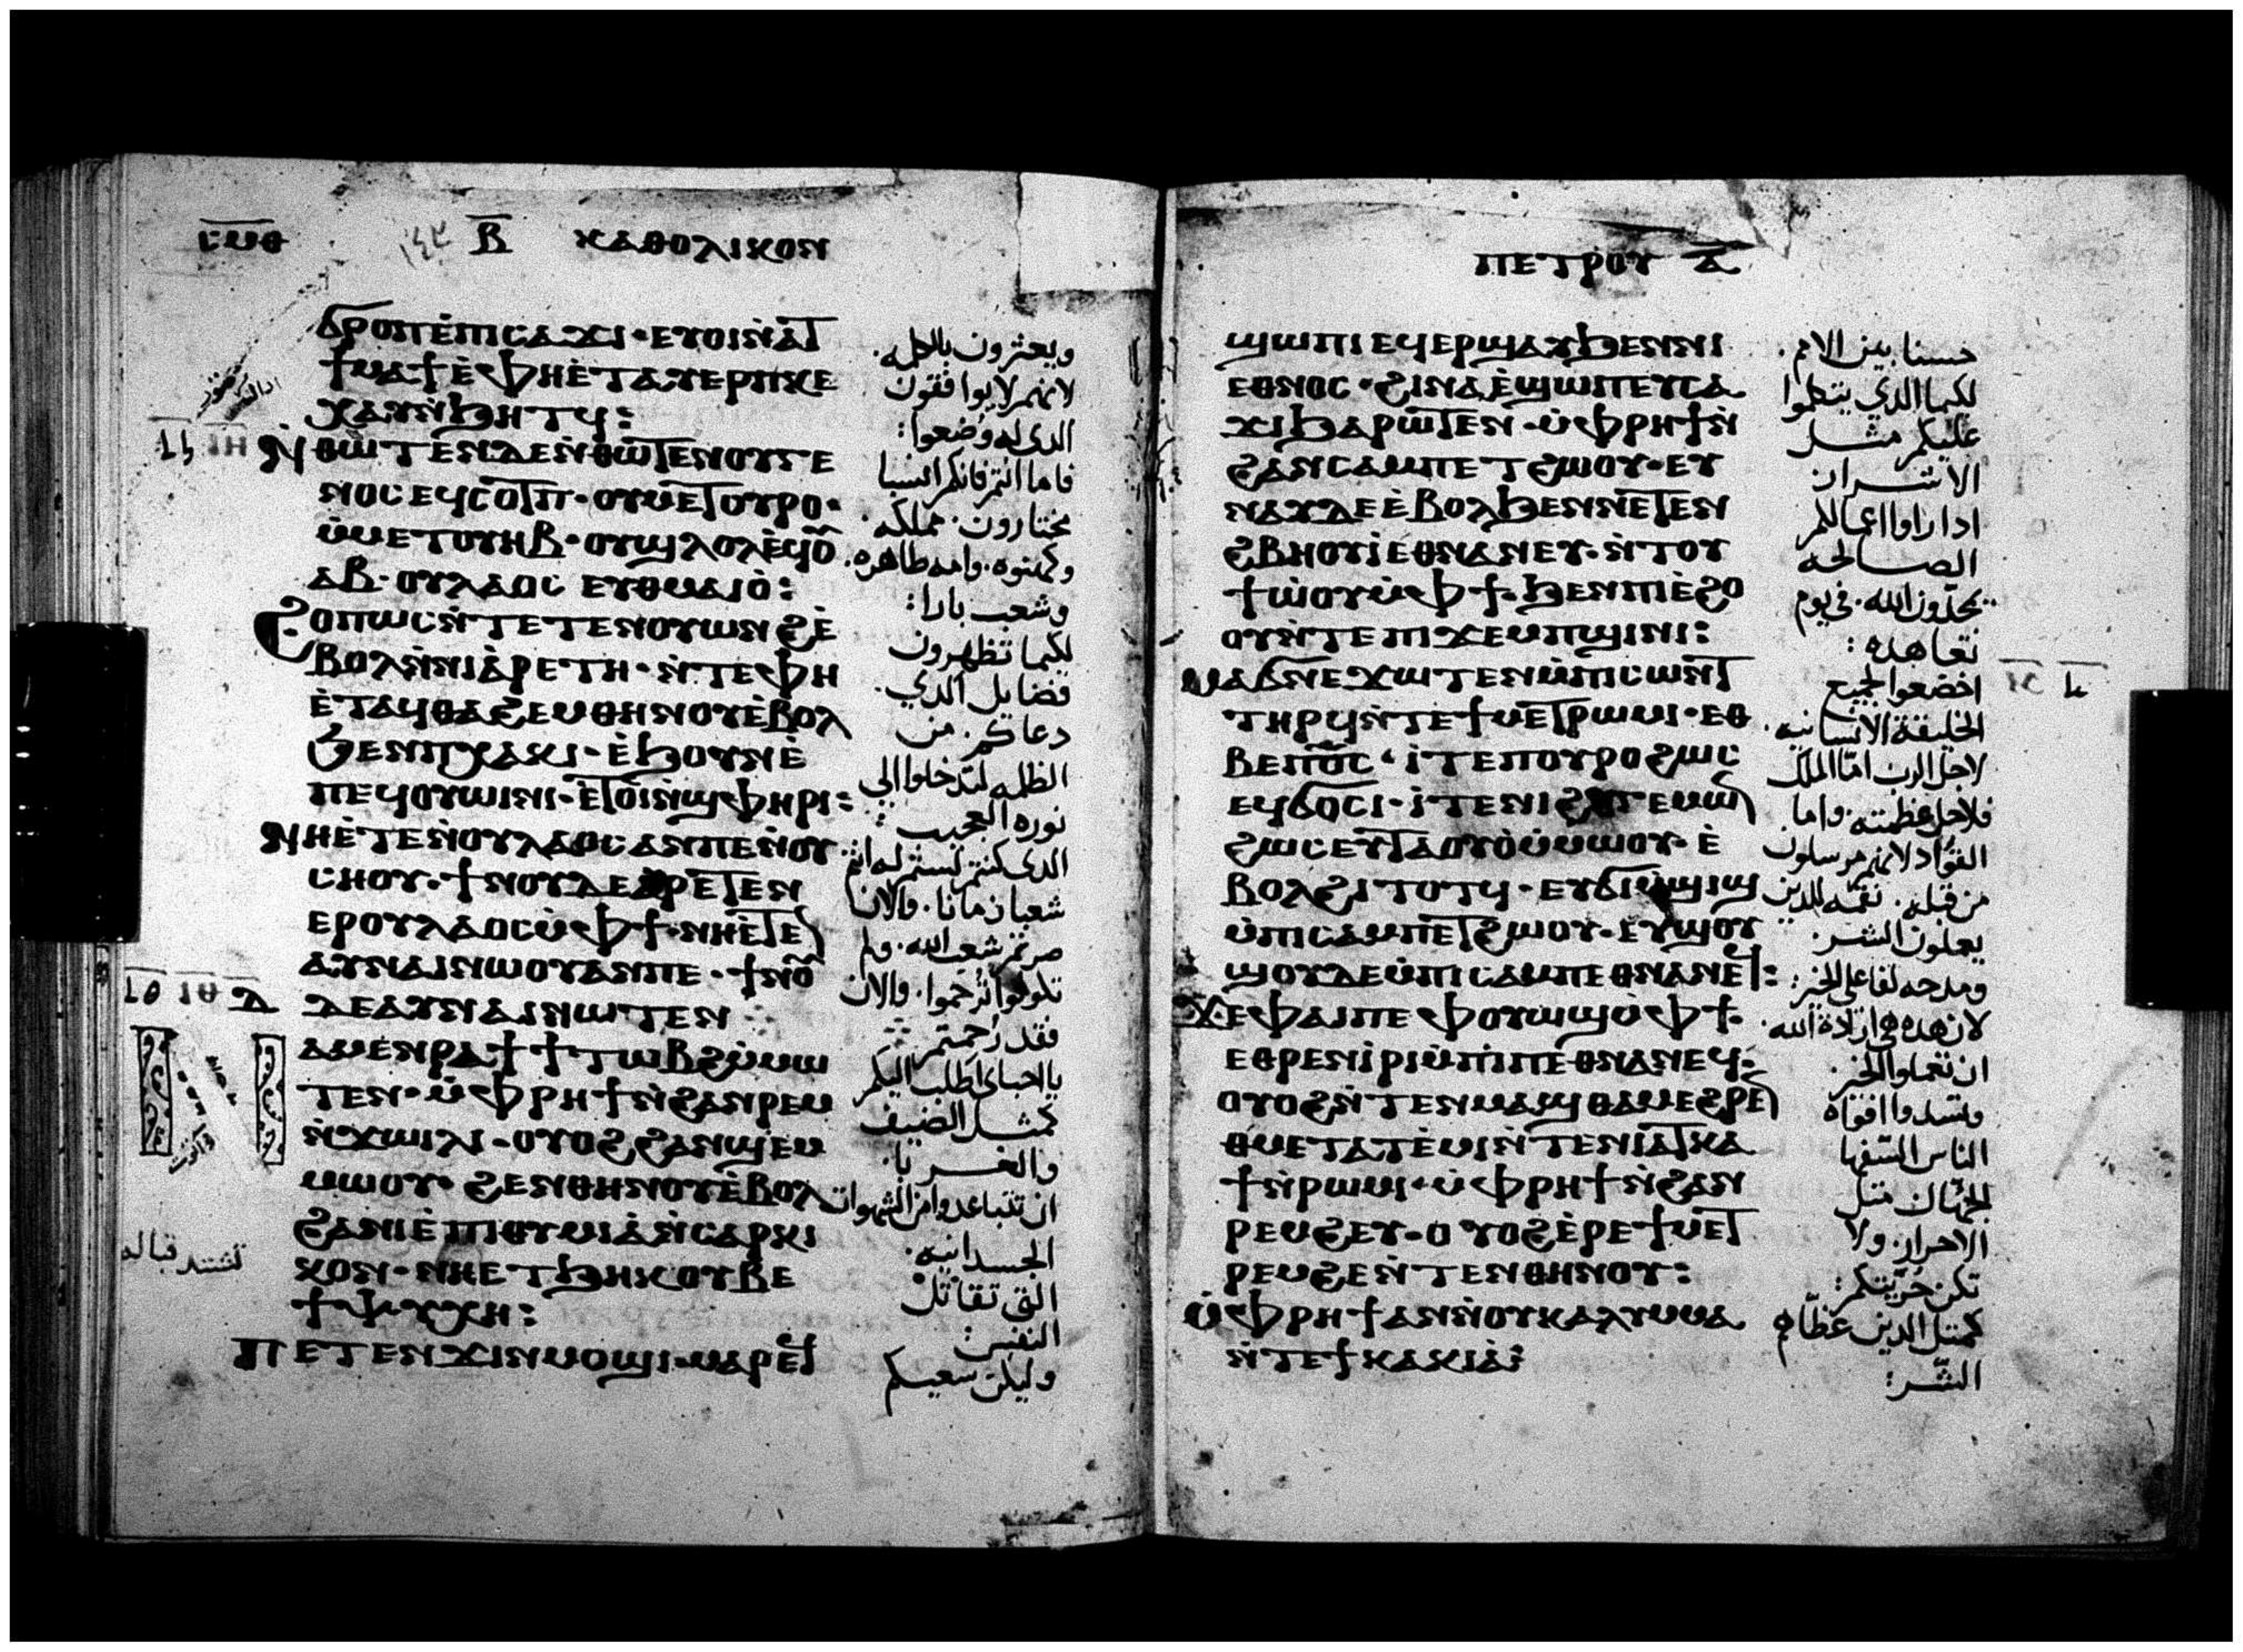 ⲥⲙⲑ ⲃ̅ ⲕⲁⲑⲟⲗⲓⲕⲟⲛ
ϭⲣⲟⲡ ⲉ̀ⲡⲓⲥⲁϫⲓ· ⲉⲩⲟⲓ ⲛ̀ⲁⲧ
ϯⲙⲁϯ ⲉ̀ⲫⲏ ⲉ̀ⲧⲁⲩⲉⲣⲡⲕⲉ
ⲭⲁⲩ ⲛ̀ϧⲏⲧϥ:
ⲛ̀ⲑⲱⲧⲉⲛ ⲇⲉ ⲛ̀ⲑⲱⲧⲉⲛ ⲟⲩⲅⲉ
ⲛⲟⲥ ⲉϥⲥⲟⲧⲡ· ⲟⲩⲙⲉⲧⲟⲩⲣⲟ·
ⲙ̀ⲙⲉⲧⲟⲩⲏⲃ· ⲟⲩϣⲗⲟⲗ ⲉ̀ϥⲟⲩ
ⲁⲃ· ⲟⲩⲗⲁⲟⲥ ⲉⲩⲑⲙⲁⲓⲟ̀:
ϩⲟⲡⲱⲥ ⲛ̀ⲧⲉⲧⲉⲛⲟⲩⲱⲛϩ ⲉ̀
ⲃⲟⲗ ⲛ̀ⲛⲓⲁ̀ⲣⲉⲧⲏ· ⲛ̀ⲧⲉ ⲫⲏ
ⲉ̀ⲧⲁϥⲑⲁϩⲉⲙ ⲑⲏⲛⲟⲩ ⲉ̀ⲃⲟⲗ
ϧⲉⲛ ⲡⲭⲁⲕⲓ· ⲉ̀ϧⲟⲩⲛ ⲉ̀
ⲡⲉϥⲟⲩⲱⲓⲛⲓ· ⲉ̀ⲧⲟⲓ ⲛ̀ϣⲫⲏⲣⲓ:
ⲛⲏ ⲉ̀ⲧⲉ ⲛ̀ⲟⲩⲗⲁⲟⲥ ⲁⲛ ⲡⲉ ⲛ̀ⲟⲩ
ⲥⲏⲟⲩ· ϯⲛⲟⲩ ⲇⲉ ⲁⲣⲉⲧⲉⲛ
ⲉⲣⲟⲩⲗⲁⲟⲥ ⲙ̀ⲫϯ· ⲛⲏ ⲉ̀ⲧⲉ
ⲁⲩⲛⲁⲓ ⲛⲱⲟⲩ ⲁⲛ ⲡⲉ· ϯⲛⲟⲩ
ⲇⲉ ⲁⲩⲛⲁⲓ ⲛⲱⲧⲉⲛ
ⲁⲙⲉⲛⲣⲁϯ ϯⲧⲱⲃϩ ⲙ̀ⲙⲱ
ⲧⲉⲛ· ⲙ̀ⲫⲣⲏϯ ⲛ̀ϩⲁⲛⲣⲉⲙ
ⲛ̀ϫⲱⲓⲗⲓ· ⲟⲩⲟϩ ϩⲁⲛϣⲉⲙ
ⲙⲱⲟⲩ· ϩⲉⲛ ⲑⲏⲛⲟⲩ ⲉ̀ⲃⲟⲗ
ϩⲁ ⲛⲓⲉ̀ⲡⲓⲑⲩⲙⲓⲁ̀ ⲛ̀ⲥⲁⲣⲕⲓ
ⲕⲟⲛ· ⲛⲏ ⲉⲧϯϧⲏⲕ ⲟⲩⲃⲉ
ϯⲯⲩⲭⲏ:
ⲡⲉⲧⲉⲛϫⲓⲛⲙⲟϣⲓ· ⲙⲁⲣⲉϥ
ويعثرون بالكلمه·
لانهم لا يوافقون
الذى له وضعوا:
فاما انتم فانكم انسبا
مختارون· مملكه·
وكهنوه· وامه طاهره·
وشعب بارا:
لكيما تظهرون
فضايل الذي·
دعاكم· من
الظلمه لتدخلوا الي
نوره العجيب:
الدى كنتم لستم له
شعبا زمانا· والان
صرتم شعب الله· ولم
تكونوا تُرحموا· والان
فقد رحمتم
يا احباى اطلب اليكم
كمثل الضيف
والغربا·
ان تتباعدوا من الشهوات
الجسدانيه·
التى تقاتل
النفس:
وليكن سعيكم
ⲡⲉⲧⲣⲟⲩ ⲁ̅
ϣⲱⲡⲓ ⲉϥⲉⲣϣⲁⲩ ϧⲉⲛ ⲛⲓ
ⲉⲑⲛⲟⲥ· ϩⲓⲛⲁ ⲉ̀ϣⲱⲡ ⲉⲩⲥⲁ
ϫⲓ ϧⲁⲣⲱⲧⲉⲛ· ⲙ̀ⲫⲣⲏϯ ⲛ̀
ϩⲁⲛⲥⲁⲙⲡⲉⲧϩⲱⲟⲩ· ⲉⲩ
ⲛⲁⲩ ⲇⲉ ⲉ̀ⲃⲟⲗ ϧⲉⲛ ⲛⲉⲧⲉⲛ
ϩⲃⲏⲟⲩⲓ̀ ⲉⲑⲛⲁⲛⲉⲩ· ⲛ̀ⲧⲟⲩ
ϯⲱ̀ⲟⲩ ⲙ̀ⲫϯ· ϧⲉⲛ ⲡⲓⲉ̀ϩⲟ
ⲟⲩ ⲛ̀ⲧⲉ ⲡⲓϫⲉⲙⲡϣⲓⲛⲓ:
ⲙⲁϭⲛⲉϫⲱⲧⲉⲛ ⲙ̀ⲡⲓⲥⲱⲛⲧ
ⲧⲏⲣϥ ⲛ̀ⲧⲉ ϯⲙⲉⲧⲣⲱⲙⲓ· ⲉⲑ
ⲃⲉ ⲡϭⲥ· ⲓ̀ⲧⲉ ⲡⲟⲩⲣⲟ ϩⲱⲥ
ⲉϥϭⲟⲥⲓ· ⲓ̀ⲧⲉ ⲛⲓϩⲏⲅⲉⲙⲱⲛ
ϩⲱⲥ ⲉⲩⲧⲁⲟⲩⲟ̀ ⲙ̀ⲙⲱⲟⲩ· ⲉ̀
ⲃⲟⲗ ϩⲓⲧⲟⲧϥ· ⲉⲩϭⲓⲙ̀ϣⲓϣ
ⲙ̀ⲡⲓⲥⲁⲙⲡⲉⲧϩⲱⲟⲩ· ⲉⲩϣⲟⲩ
ϣⲟⲩ ⲇⲉ ⲙ̀ⲡⲓⲥⲁⲙⲡⲉⲑⲛⲁⲛⲉϥ:
ϫⲉ ⲫⲁⲓ ⲡⲉ ⲫⲟⲩⲱϣ ⲙ̀ⲫϯ·
ⲉⲑⲣⲉⲛⲓ̀ⲣⲓ ⲙ̀ⲡⲓⲡⲉⲑⲛⲁⲛⲉϥ·
ⲟⲩⲟϩ ⲛ̀ⲧⲉⲛⲙⲁϣⲑⲁⲙ ⲉϩⲣⲉⲛ
ⲑⲙⲉⲧⲁⲧⲉ̀ⲙⲓ ⲛ̀ⲧⲉ ⲛⲓⲁⲧⲕⲁ
ϯ ⲛ̀ⲣⲱⲙⲓ· ⲙ̀ⲫⲣⲏϯ ⲛ̀ϩⲁⲛ
ⲣⲉⲙϩⲉⲩ· ⲟⲩⲟϩ ⲉ̀ⲣⲉ ϯⲙⲉⲧ
ⲣⲉⲙϩⲉ ⲛ̀ⲧⲉⲛ ⲑⲏⲛⲟⲩ:
ⲙ̀ⲫⲣⲏϯ ⲁⲛ ⲛ̀ⲟⲩⲕⲁⲗⲩⲙⲙⲁ
ⲛ̀ⲧⲉ ϯⲕⲁⲕⲓⲁ̀:
حسنا بين الامم·
لكيما الذي يتكلموا
عليكم مثل
الاشرار
ادا راوا اعمالكم
الصالحه
يمجّدون الله· في يوم
تعاهده:
اخضعوا لجميع
الخليقة الانسانيه·
لاجل الرب امّا الملك
فلاجل عظمته· واما
القوّاد لانهم مرسلون
من قبله· نقمه للذين
يعملون الشر·
ومدحه لفاعلى الخير:
لان هذه هي ارادة الله·
ان تعملوا الخير·
وتسدوا افواه
الناس السّفها
الجهّال مثل
الاحرار· ولا
تكن حرّيتكم:
كمثل الدين غطّاهم
الشّر: